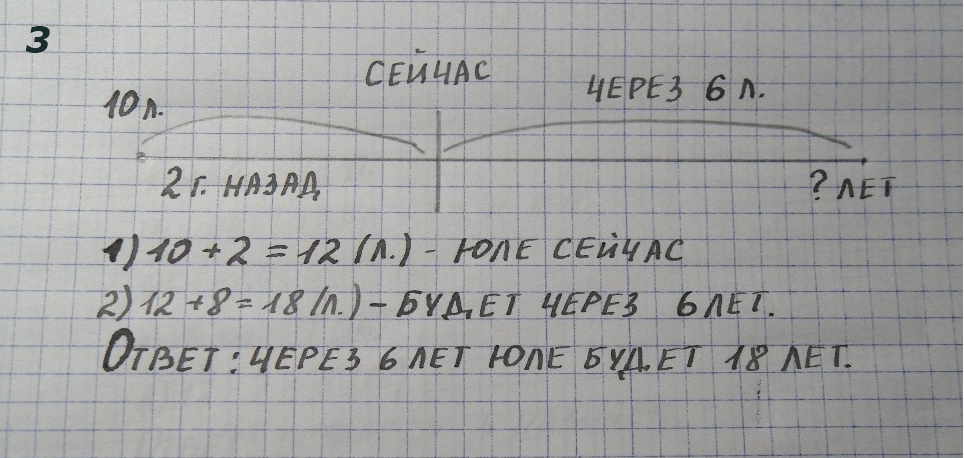 3
СЕЙЧАС
ЧЕРЕЗ 6 Л.
10 Л.
2 Г. НАЗАД
? ЛЕТ
1) 10 + 2 = 12 (Л.) - ЮЛЕ СЕЙЧАС
2) 12 + 8 = 18 (Л.) - БУДЕТ ЧЕРЕЗ 6 ЛЕТ.
ОТВЕТ: ЧЕРЕЗ 6 ЛЕТ ЮЛЕ БУДЕТ 18 ЛЕТ.